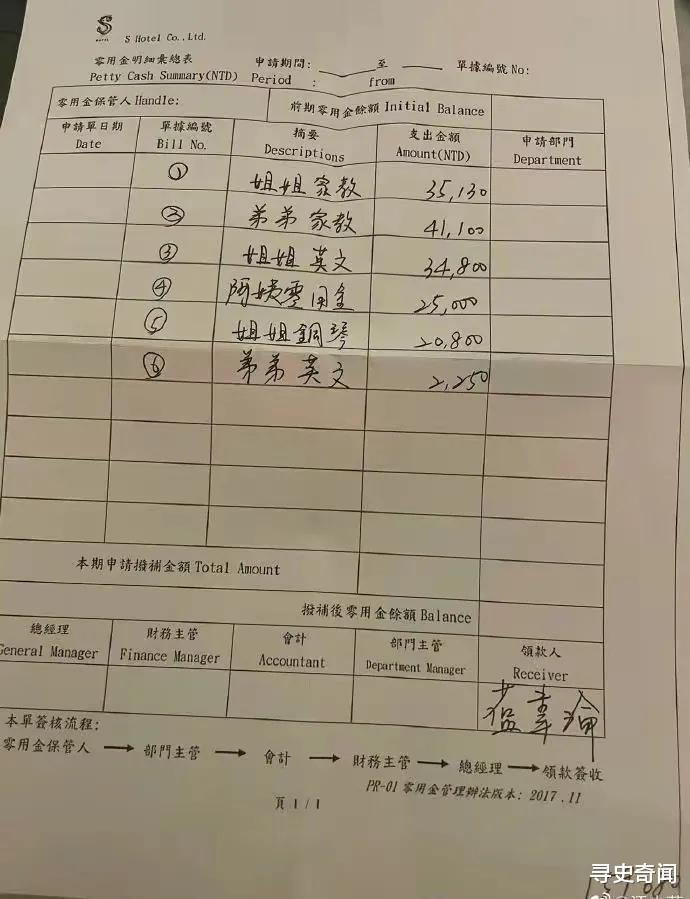 S
HOTEL
S Hotel Co.,Ltd.
零用金明細彙總表 申請期間: 至 單據編號 No:
Petty Cash Summary(NTD) Period : from
零用金保管人 Handle: 前期零用金餘額 Initial Balance
申請單日期 單據編號 摘要 支出金額 申請部門
Date Bill No. Descriptions Amount(NTD) Department
① 姐姐家教 35,130
② 弟弟家教 41,100
③ 姐姐英文 34,800
④ 阿姨零用金 25,000
⑤ 姐姐鋼琴 20,800
⑥ 弟弟英文 2,250
本期申請撥補金額 Total Amount
撥補後零用金餘額 Balance
總經理 財務主管 會計 部門主管 領款人
General Manager Finance Manager Accountant Department Manager Receiver
本單簽核流程:
零用金保管人 → 部門主管 → 會計 → 財務主管 → 總經理 → 領款簽收
PR-01 零用金管理辦法版本: 2017.11
頁 1 / 1
寻史奇闻